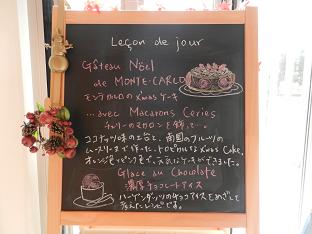 Leçon de jour
Gâteau Nöel
de MONTE-CARLO
モンテカルロの X'mas ケーキ
...avec Macarons Ceries
チェリーのマカロンを飾って…。
ココナッツ味の土台と、南国のフルーツの
ムースリーヌで作った、トロピカルな X'mas Cake。
オレンジ色とピンク色で、元気なケーキができました。
Glace au Chocolate
濃厚チョコレートアイス
ハーゲンダッツのチョコアイスをめざして
考えたレシピです。